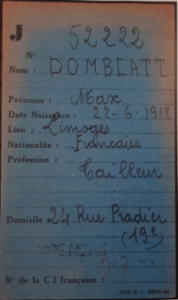 J 52222
N°
Nom : DOMBLATT
Prénoms : Max
Date Naissance : 22-6-1918
Lieu : Limoges
Nationalité : Francaise
Profession :
Tailleur
Domicile 24 Rue Pradier
(19e)
N° de la C I française :